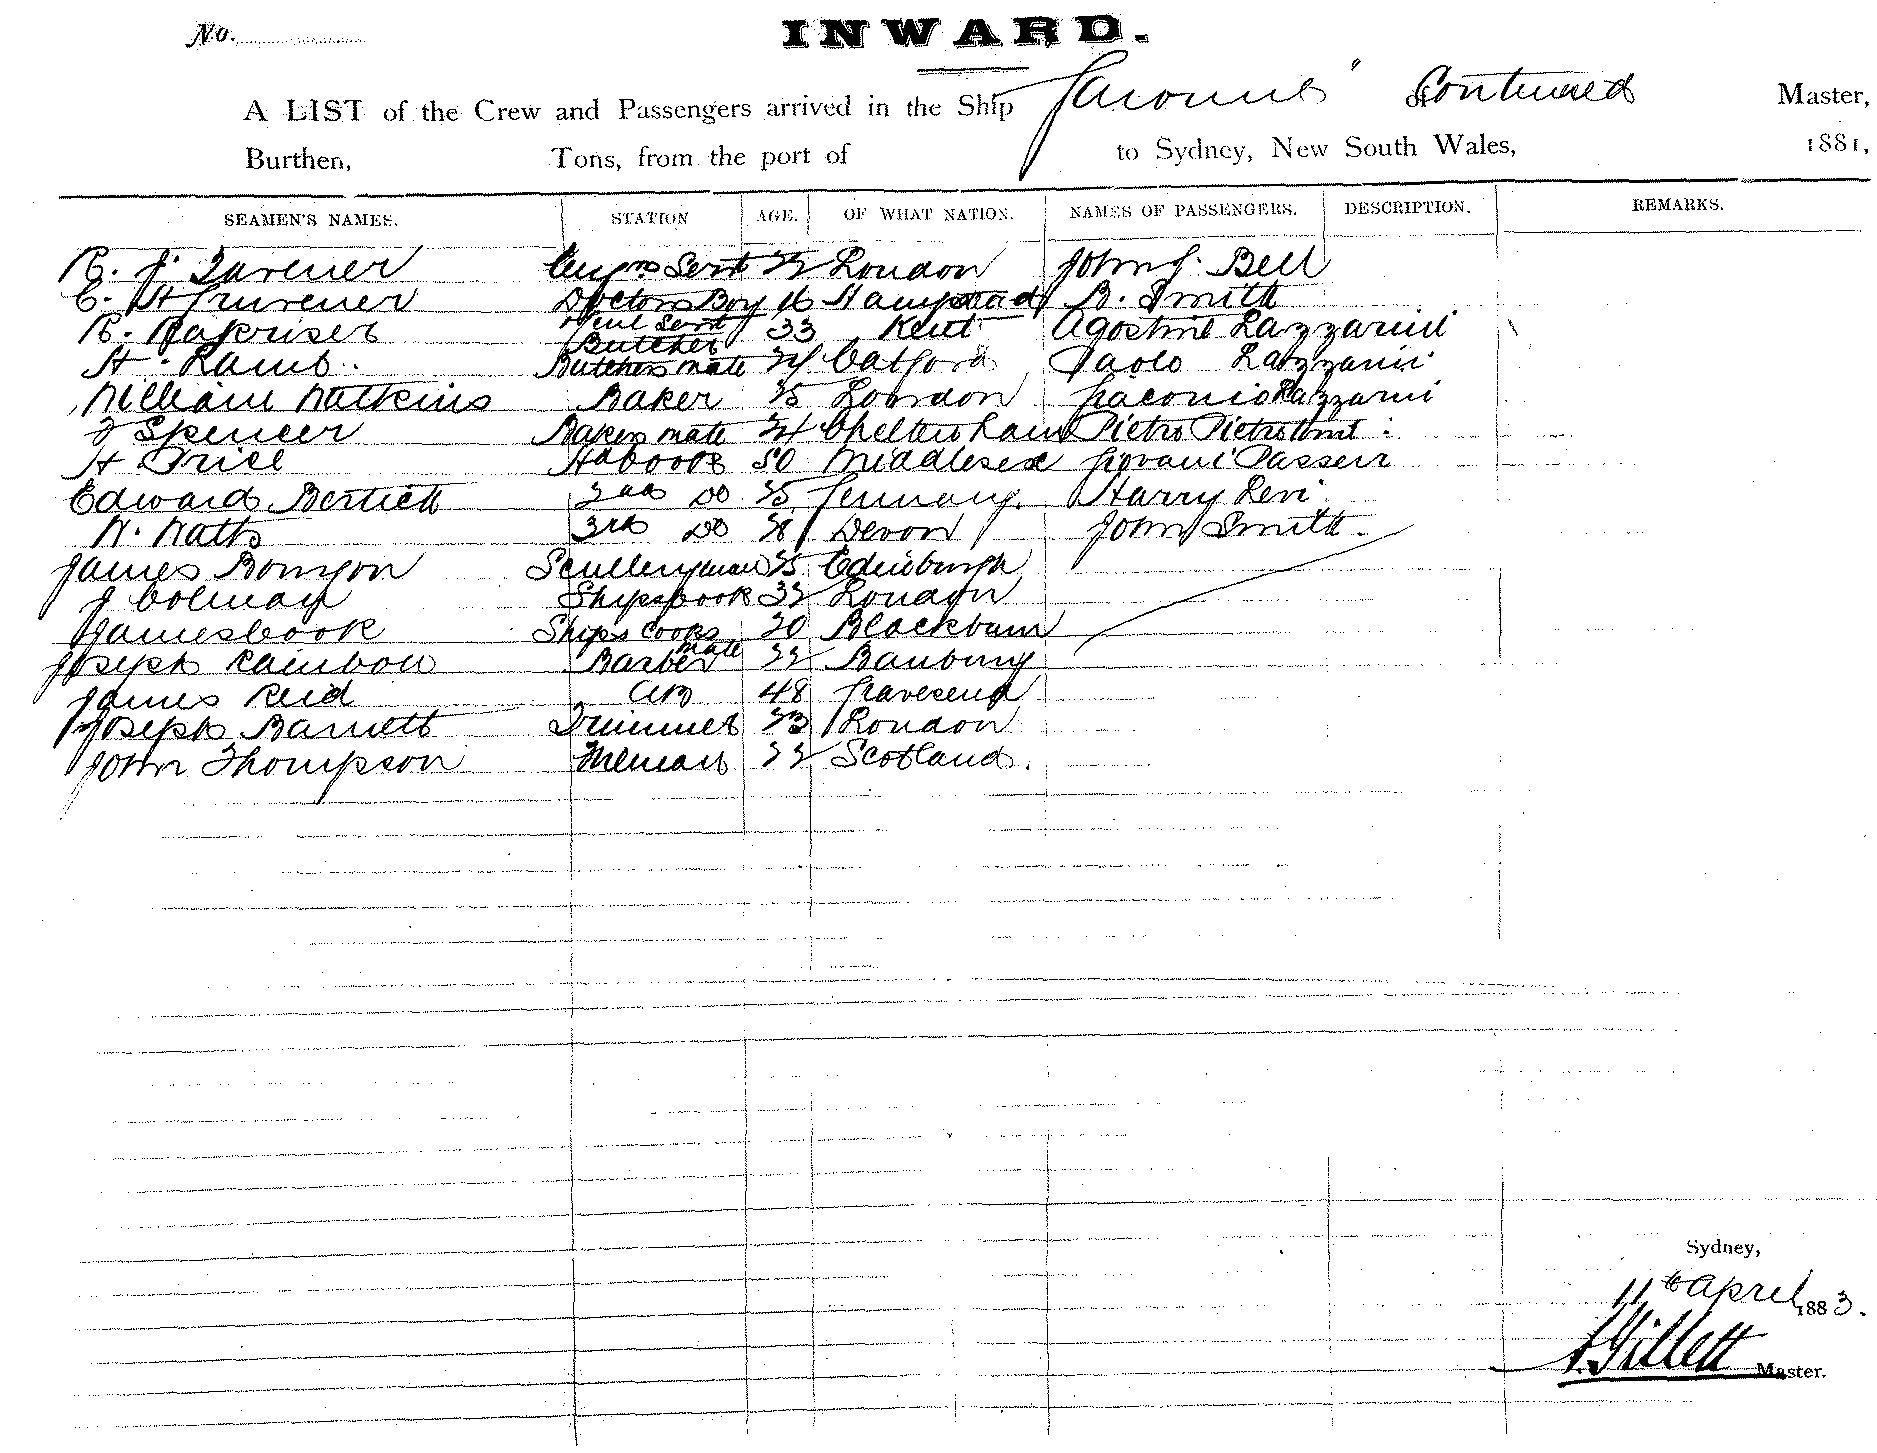 No.
INWARD.
A LIST of the Crew and Passengers arrived in the Ship Garonne" Continued Master,
Burthen, Tons, from the port of to Sydney, New South Wales, 1881,
SEAMEN'S NAMES. STATION AGE. OF WHAT NATION. NAMES OF PASSENGERS. DESCRIPTION. REMARKS.
R. J. Servt 22 London John G. Bell
C. H. Doctors Boy 16 Hampstead B. Smith
R. Servt Butcher 33 Kent Agostino Lazzarini
H. Lamb. Butchers mate 24 Catford Paolo Lazzarini
William Watkins Baker 25 London Giacomo Lazzarini
J Spencer Bakers mate 24 Cheltenham Pietro
H Price 50 Middlesex Giovani Passeri
Edward 2nd Do 25 Germany. Harry Levi
W. Watts 3rd Do 28 Devon John Smith.
James Scullery man 25 Edinburgh
J Colman Ships Cook 32 London
James Cook Ships Cooks mate 20 Blackburn
Joseph Rainbow Barber 22 Banbury
James Reid AB 48 Gravesend
Joseph Barnett Trimmer 23 London
John Thompson Fireman 22 Scotland.
Sydney,
11th April 1883.
Gillett Master.